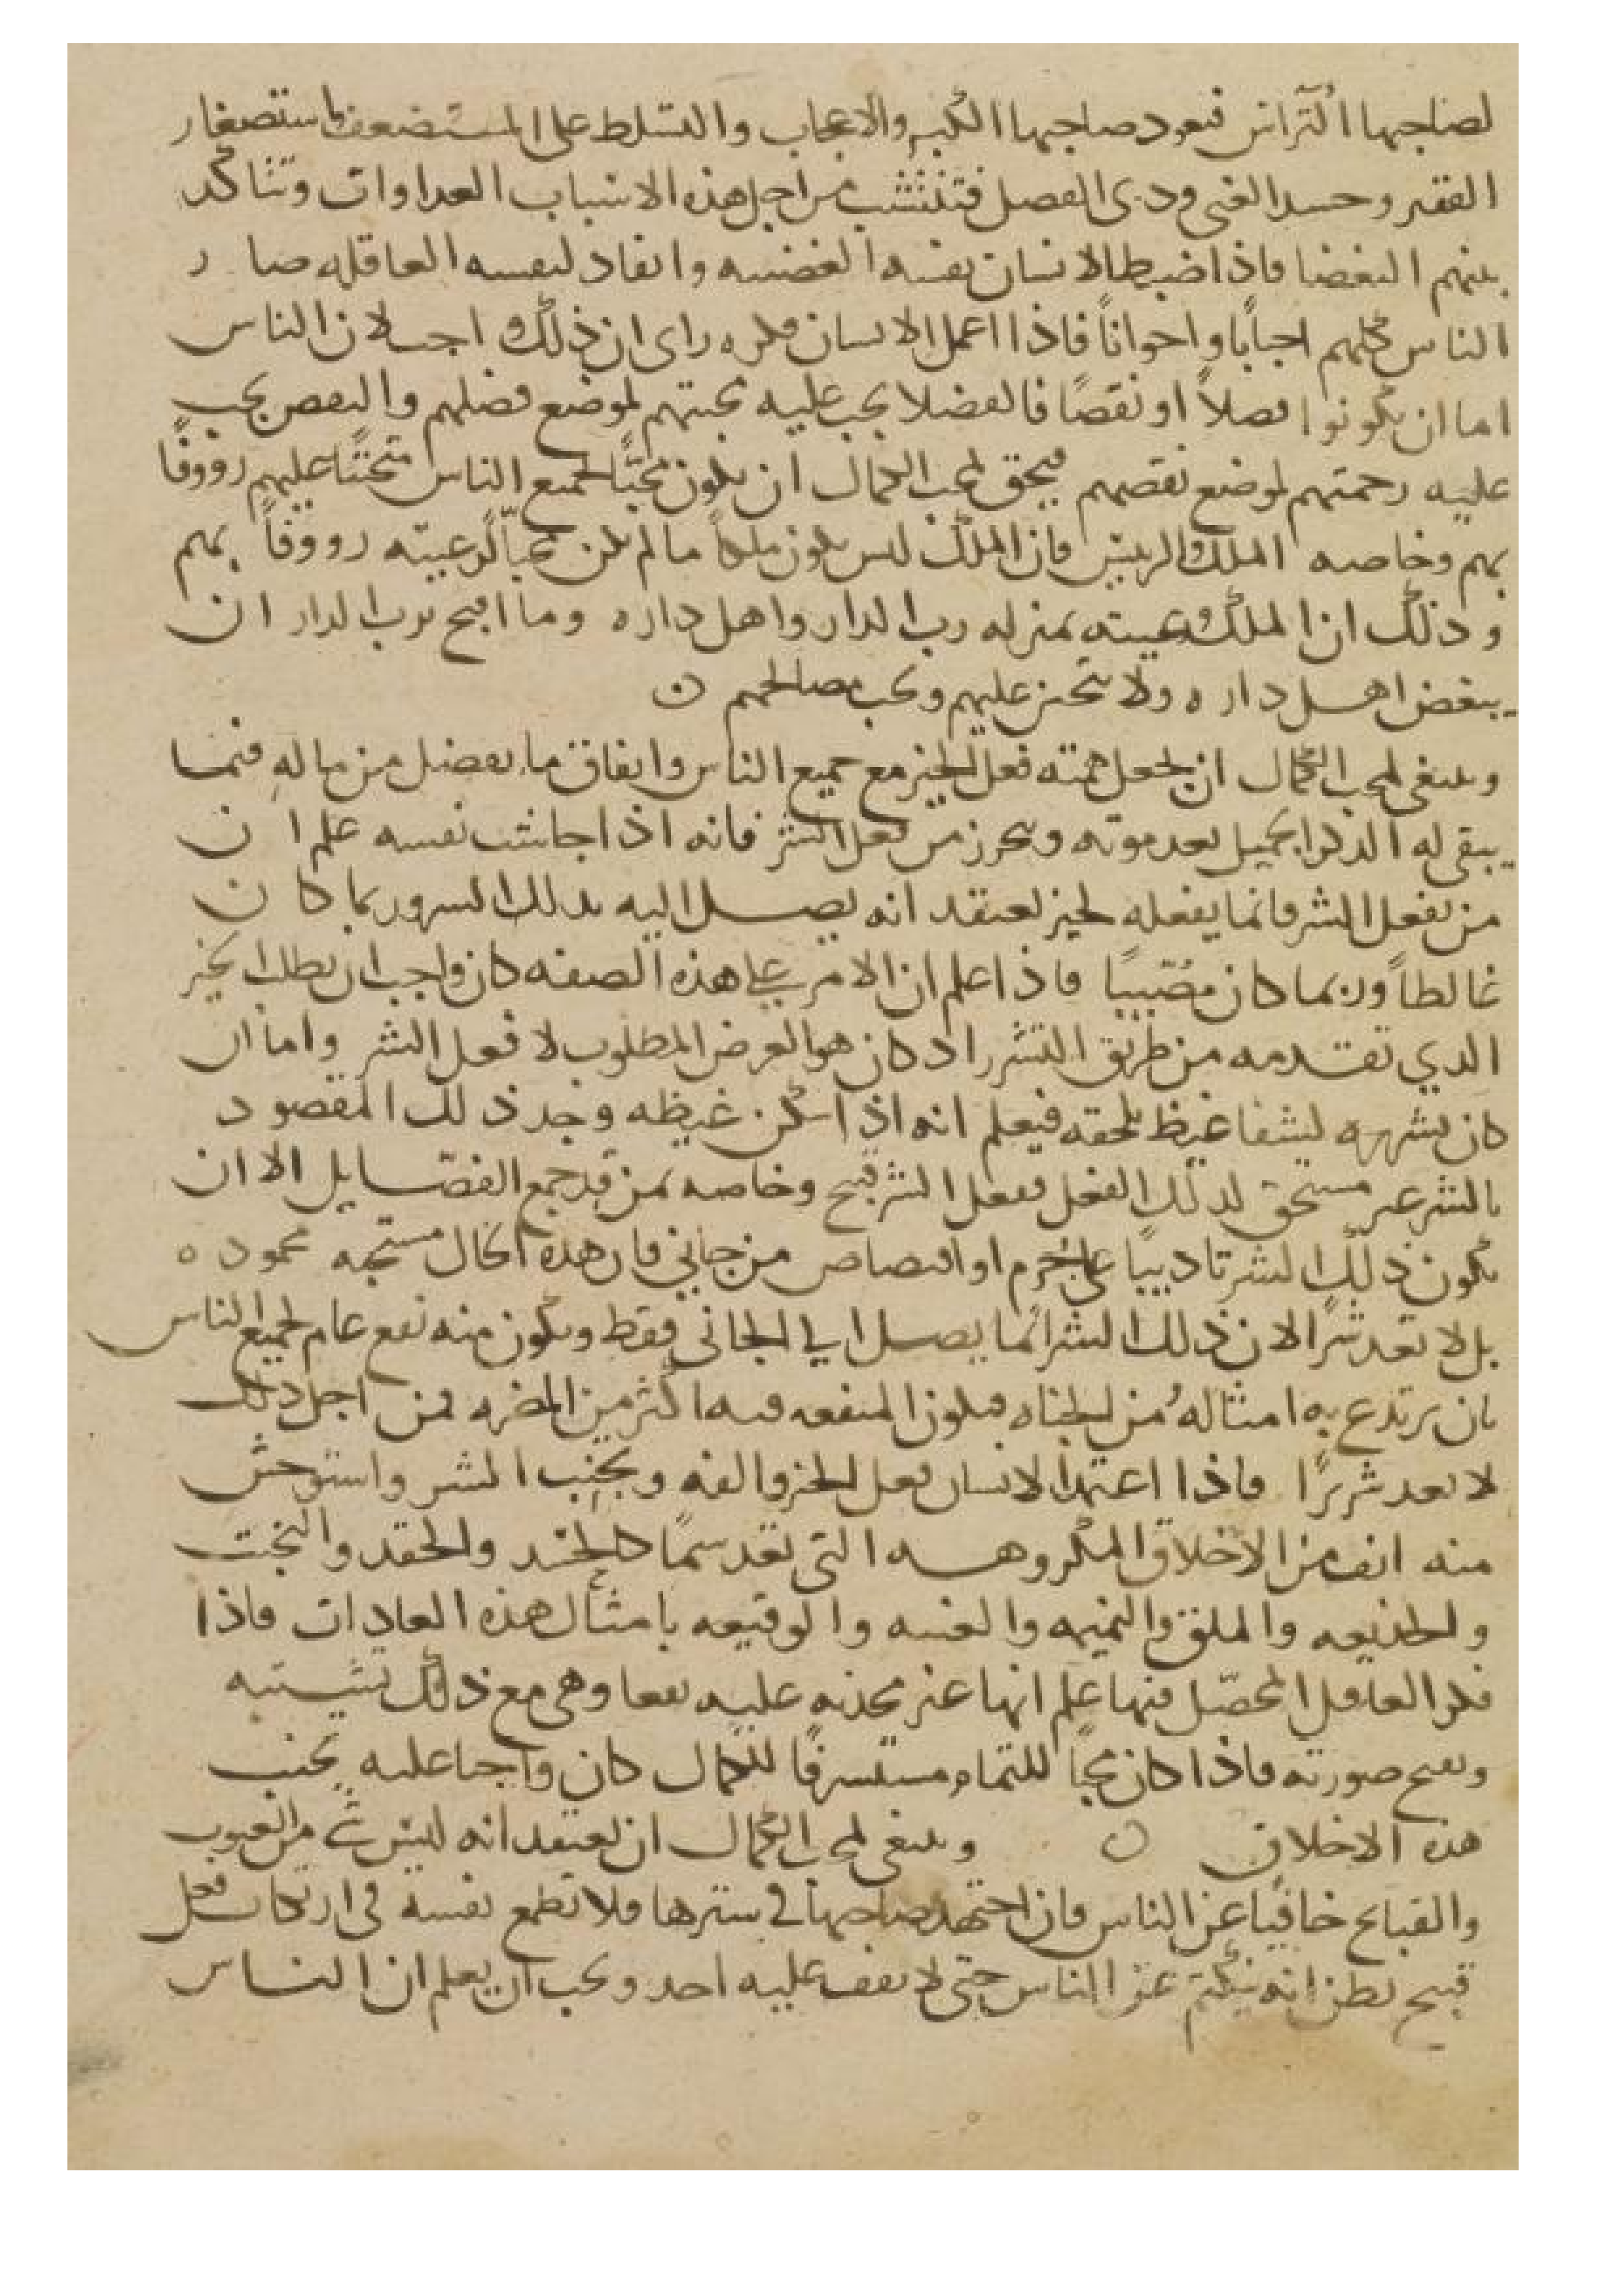 لصاحبها الترأس فيعود صاحبها الكبر والاعجاب والتسلط على المستضعف باستصغار
الفقير وحسد الغني وذي الفضل فتنتشب من اجل هذه الاسباب العداوات وتتاكد
بينهم البغضا فاذا ضبط الانسان نفسه الغضبيه وانقاد لنفسه العاقله صار
الناس كلهم احبابًا واخوانًا فاذا اعمل الانسان فكره راى ان ذلك واجب لان الناس
اما ان يكونوا فضلاً او نقصًا فالفضلا يجب عليه محبتهم لموضع فضلهم والنقص يجب
عليه رحمتهم لموضع نقصهم فيحق لمحب الكمال ان يكون محبًا لجميع الناس متحننًا عليهم رووفًا
بهم وخاصه الملك والرييس فان الملك ليس يكون ملكاً ما لم يكن محبًا لرعيته رووفاً بهم
وذلك ان الملك ورعيته بمنزله رب الدار واهل داره وما اقبح برب الدار ان
يبغض اهل داره ولا يتحنن عليهم ويحب مصالحهم
وينبغي لمحب الكمال ان يجعل همته فعل الخير مع جميع الناس وانفاق ما يفضل من ماله فيما
يبقي له الذكر الجميل بعد موته ويتحرز من فعل الشر فانه اذا حاسب نفسه علم ان
من يفعل الشر فانما يفعله لخير يعتقد انه يصل اليه بذلك السرور بما كان
غالطاً وربما كان مصيبًا فاذا علم ان الامر على هذه الصفه كان واجب ان يطلب الخير
الذي تقدمه من طريق الشر اذ كان هو الغرض المطلوب لا فعل الشر واما ان
كان يشهره ليشفا غيظ يلحقه فيعلم انه اذا سكن غيظه وجد ذلك المقصود
بالشر غير مستحق لذلك الفعل ففعل الشر قبيح وخاصه بمن قد جمع الفضايل الا ان
يكون ذلك الشر تاديبًا على جرم او اقتصاص من جاني فان هذه الحال مستحبه محموده
بل لا تعد شرًا لان ذلك الشر انما يصل الي الجاني فقط ويكون منه نفع عام لجميع الناس
بان يرتدع به امثاله من الجناه فيكون المنفعه فيه اكثر من المضره فمن اجل ذلك
لا يعد شريرًا فاذا اعتمد الانسان فعل الخير والفه وتجنب الشر واستوحش
منه انف من الاخلاق المكروهه التي تعد سمًا كالحسد والحقد والخبث
والخديعه والملق والنميمه والغيبه والوقيعه بامثال هذه العادات فاذا
فكر العاقل المحصّل فيها علم انها غير مجديه عليه نفعا وهي مع ذلك تشينه
وتقبح صورته فاذا كان محبًا للتمام مستشرفًا للكمال كان واجبا عليه تجنب
هذه الاخلاق وينبغي لمحب الكمال ان يعتقد انه ليس شي من العيوب
والقبايح خافيًا عن الناس فان اجتهد صاحبها في سترها فلا تطمع نفسه في ارتكاب فعل
قبيح يظن انه ينكتم عن الناس حتى لا يقف عليه احد ويجب ان يعلم ان الناس